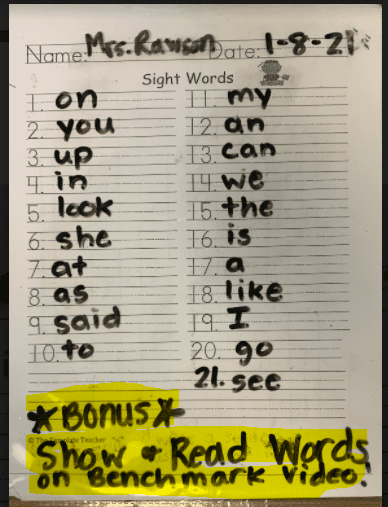 Name: Mrs. Rawson Date: 1-8-21
Sight Words
1. on
2. you
3. up
4. in
5. look
6. she
7. at
8. as
9. said
10. to
11. my
12. an
13. can
14. we
15. the
16. is
17. a
18. like
19. I
20. go
21. see
*BONUS*
© The Template Teacher
Show & Read Words
on Benchmark Video!